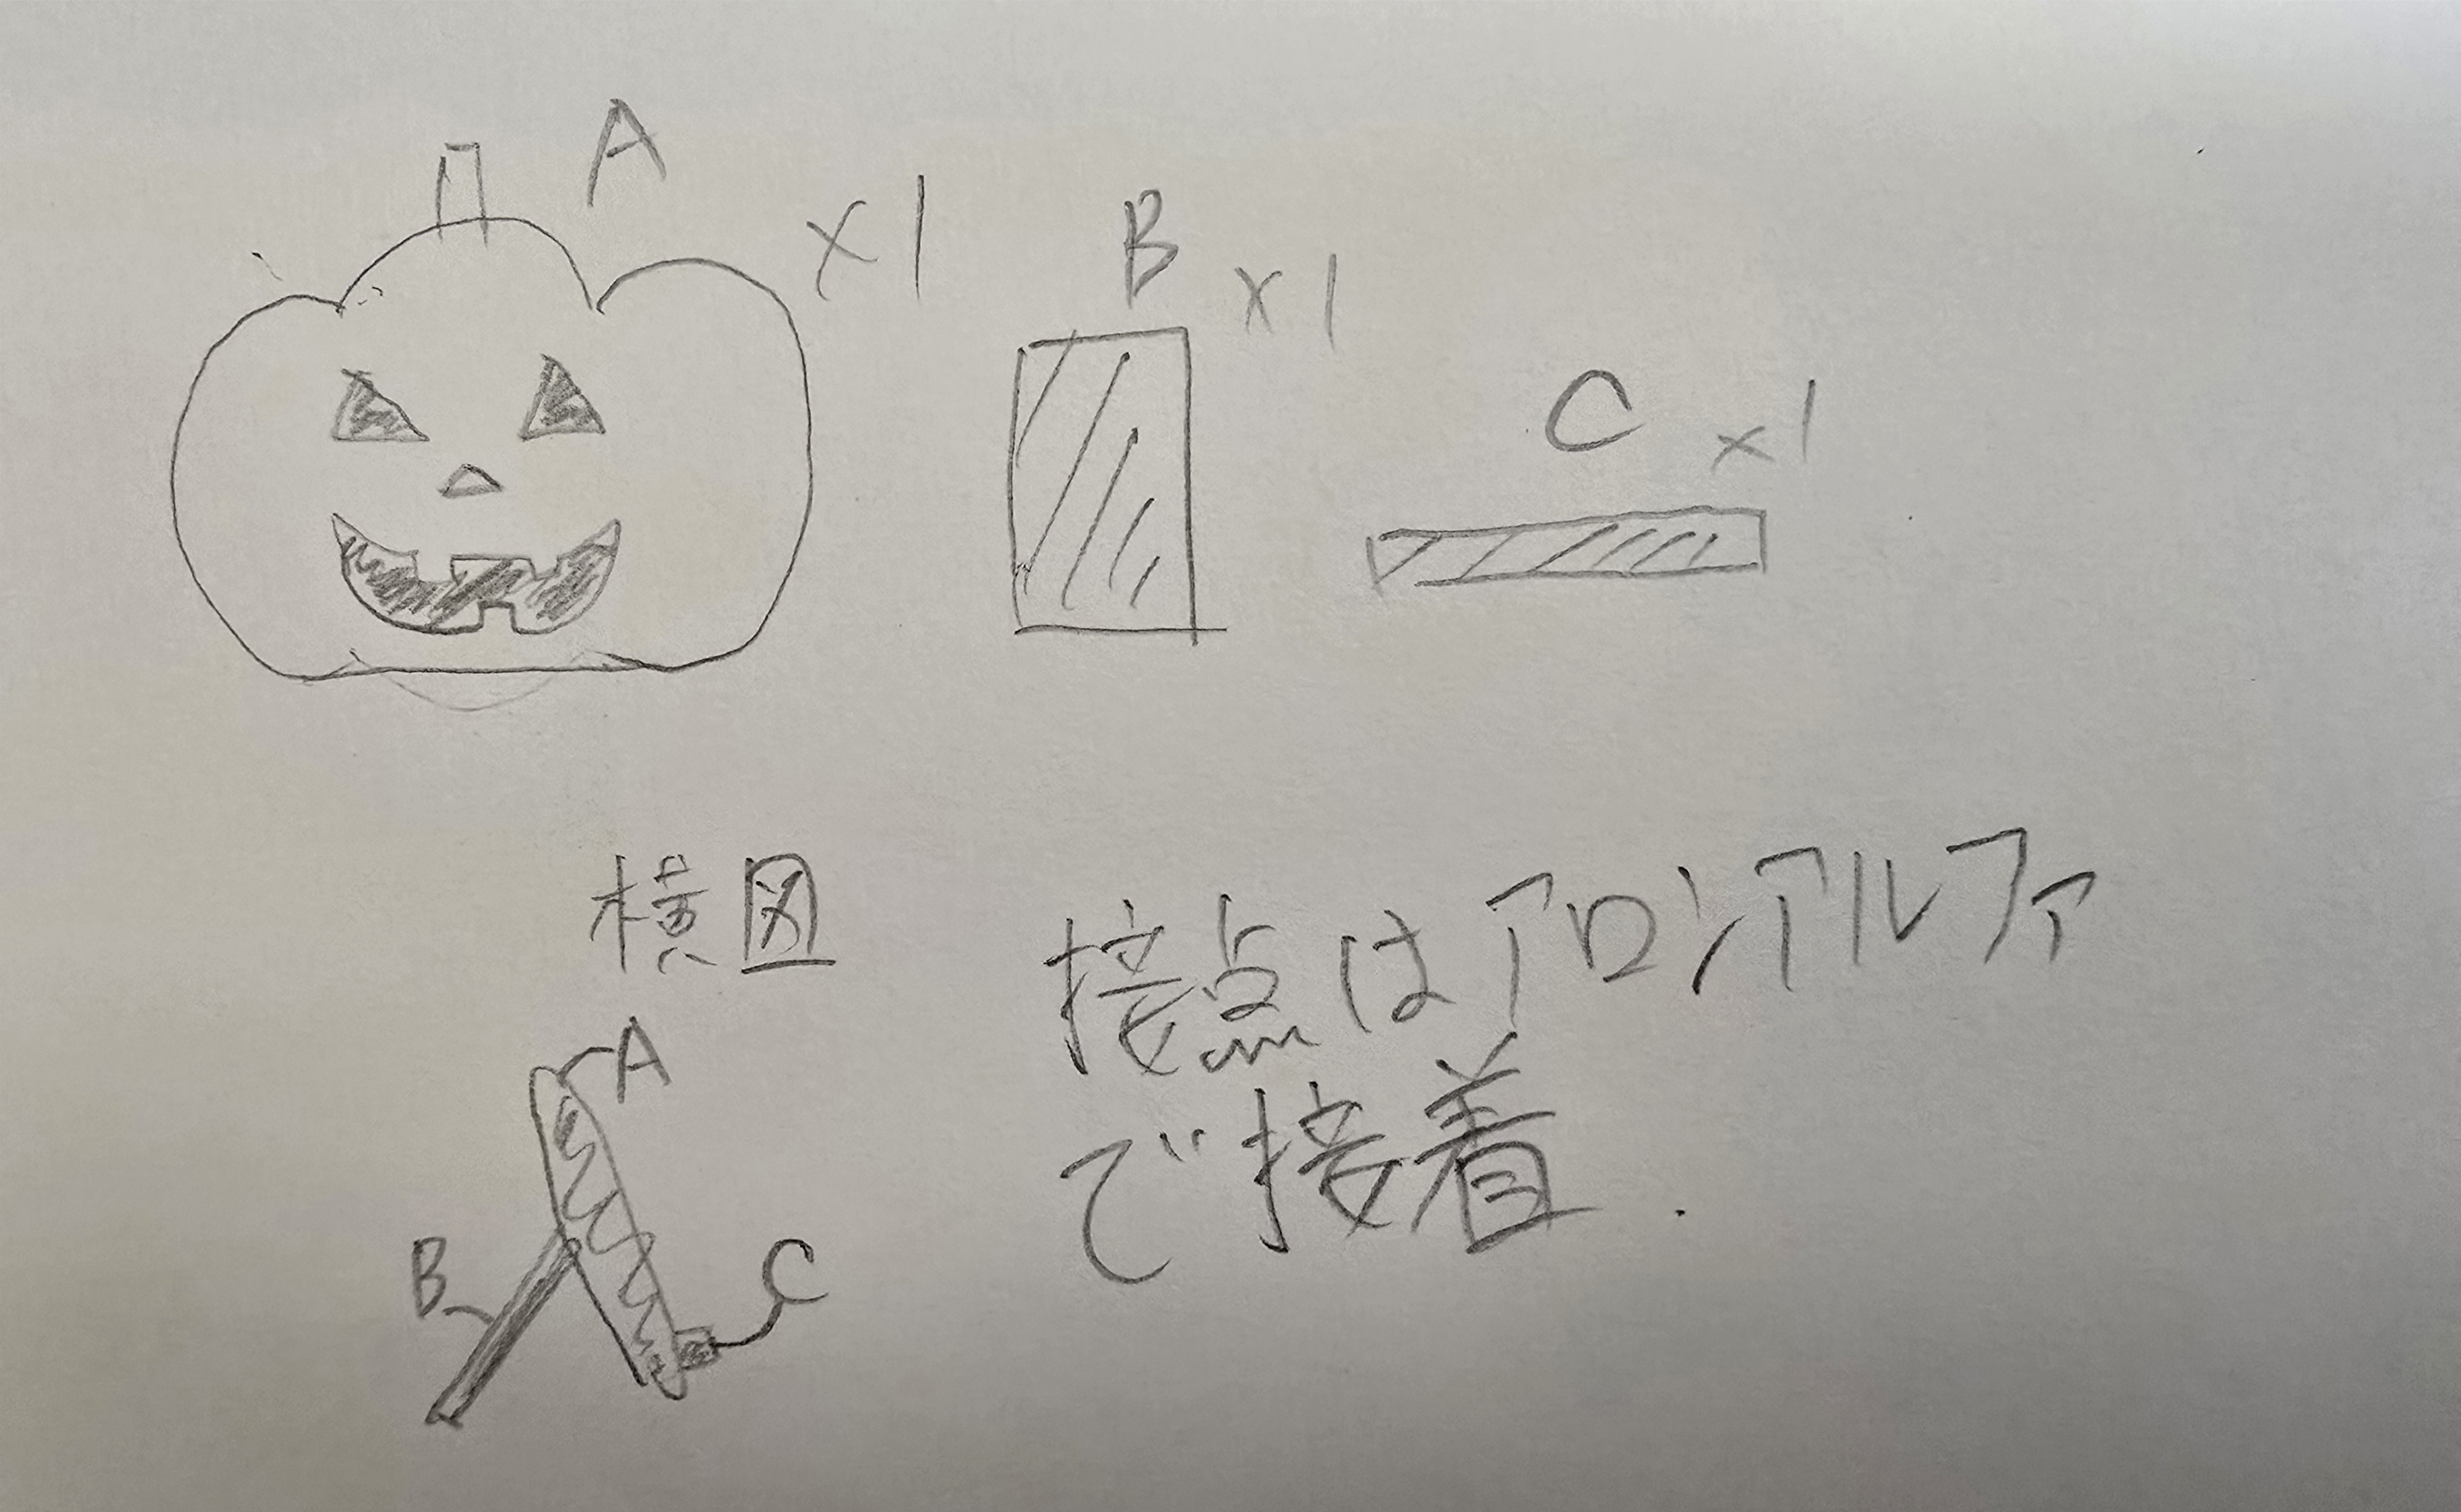 A
×1
B
×1
C
×1
横図
A
B
C
接点はアロンアルファ
で接着.